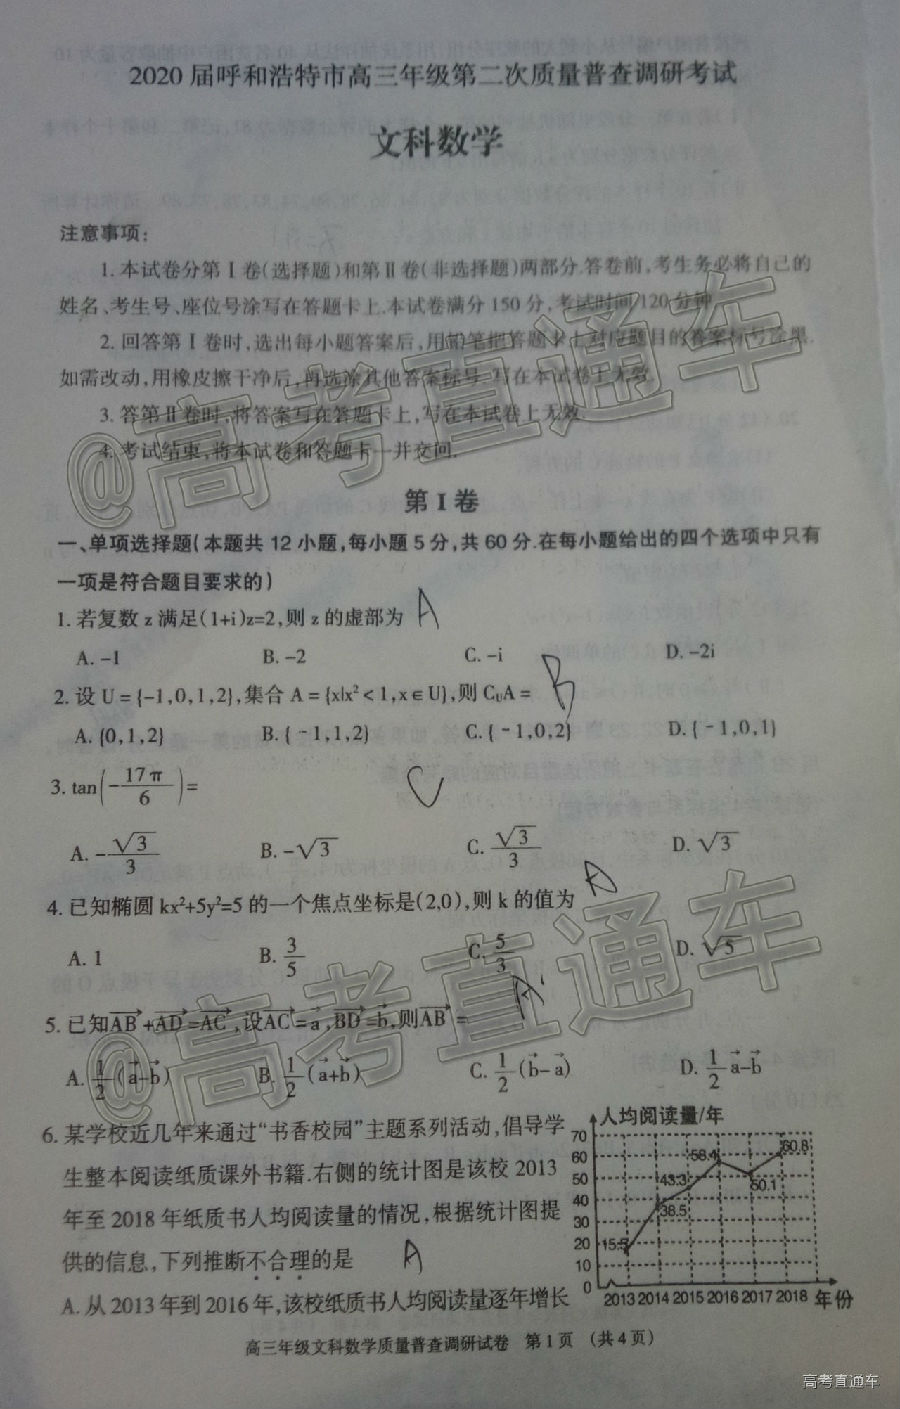 2020 届呼和浩特市高三年级第二次质量普查调研考试
文科数学
注意事项:
1.本试卷分第Ⅰ卷(选择题)和第Ⅱ卷(非选择题)两部分.答卷前,考生务必将自己的
姓名、考生号、座位号涂写在答题卡上.本试卷满分 150 分,考试时间 120 分钟.
2.回答第Ⅰ卷时,选出每小题答案后,用铅笔把答题卡上对应题目的答案标号涂黑.
如需改动,用橡皮擦干净后,再选涂其他答案标号.写在本试卷上无效.
3.答第Ⅱ卷时,将答案写在答题卡上,写在本试卷上无效.
4.考试结束,将本试卷和答题卡一并交回.
@高考直通车
第Ⅰ卷
一、单项选择题(本题共 12 小题,每小题 5 分,共 60 分.在每小题给出的四个选项中只有
一项是符合题目要求的)
1.若复数 z 满足(1+i)z=2,则 z 的虚部为 A
A. -1 B. -2 C. -i D. -2i
2.设 U={-1,0,1,2},集合 A={x|x²<1,x∈U},则 C_UA= B
A.{0,1,2} B.{-1,1,2} C.{-1,0,2} D.{-1,0,1}
3. tan(-17π/6)= C
A. -√3/3 B. -√3 C. √3/3 D. √3
4.已知椭圆 kx²+5y²=5 的一个焦点坐标是(2,0),则 k 的值为 A
A. 1 B. 3/5 C. 5/3 D. √5
@高考直通车
5.已知AB→+AD→=AC→,设AC→=a→,BD→=b→,则AB→= A
A. 1/2(a→-b→) B. 1/2(a→+b→) C. 1/2(b→-a→) D. 1/2a→-b→
6.某学校近几年来通过“书香校园”主题系列活动,倡导学
生整本阅读纸质课外书籍.右侧的统计图是该校 2013
年至 2018 年纸质书人均阅读量的情况,根据统计图提
供的信息,下列推断不合理的是 A
A.从 2013 年到 2016 年,该校纸质书人均阅读量逐年增长
人均阅读量/年
70
60
50
40
30
20
10
0
15.5
38.5
43.3
58.4
50.1
60.8
2013 2014 2015 2016 2017 2018 年份
高三年级文科数学质量普查调研试卷 第1页 (共4页)
高考直通车